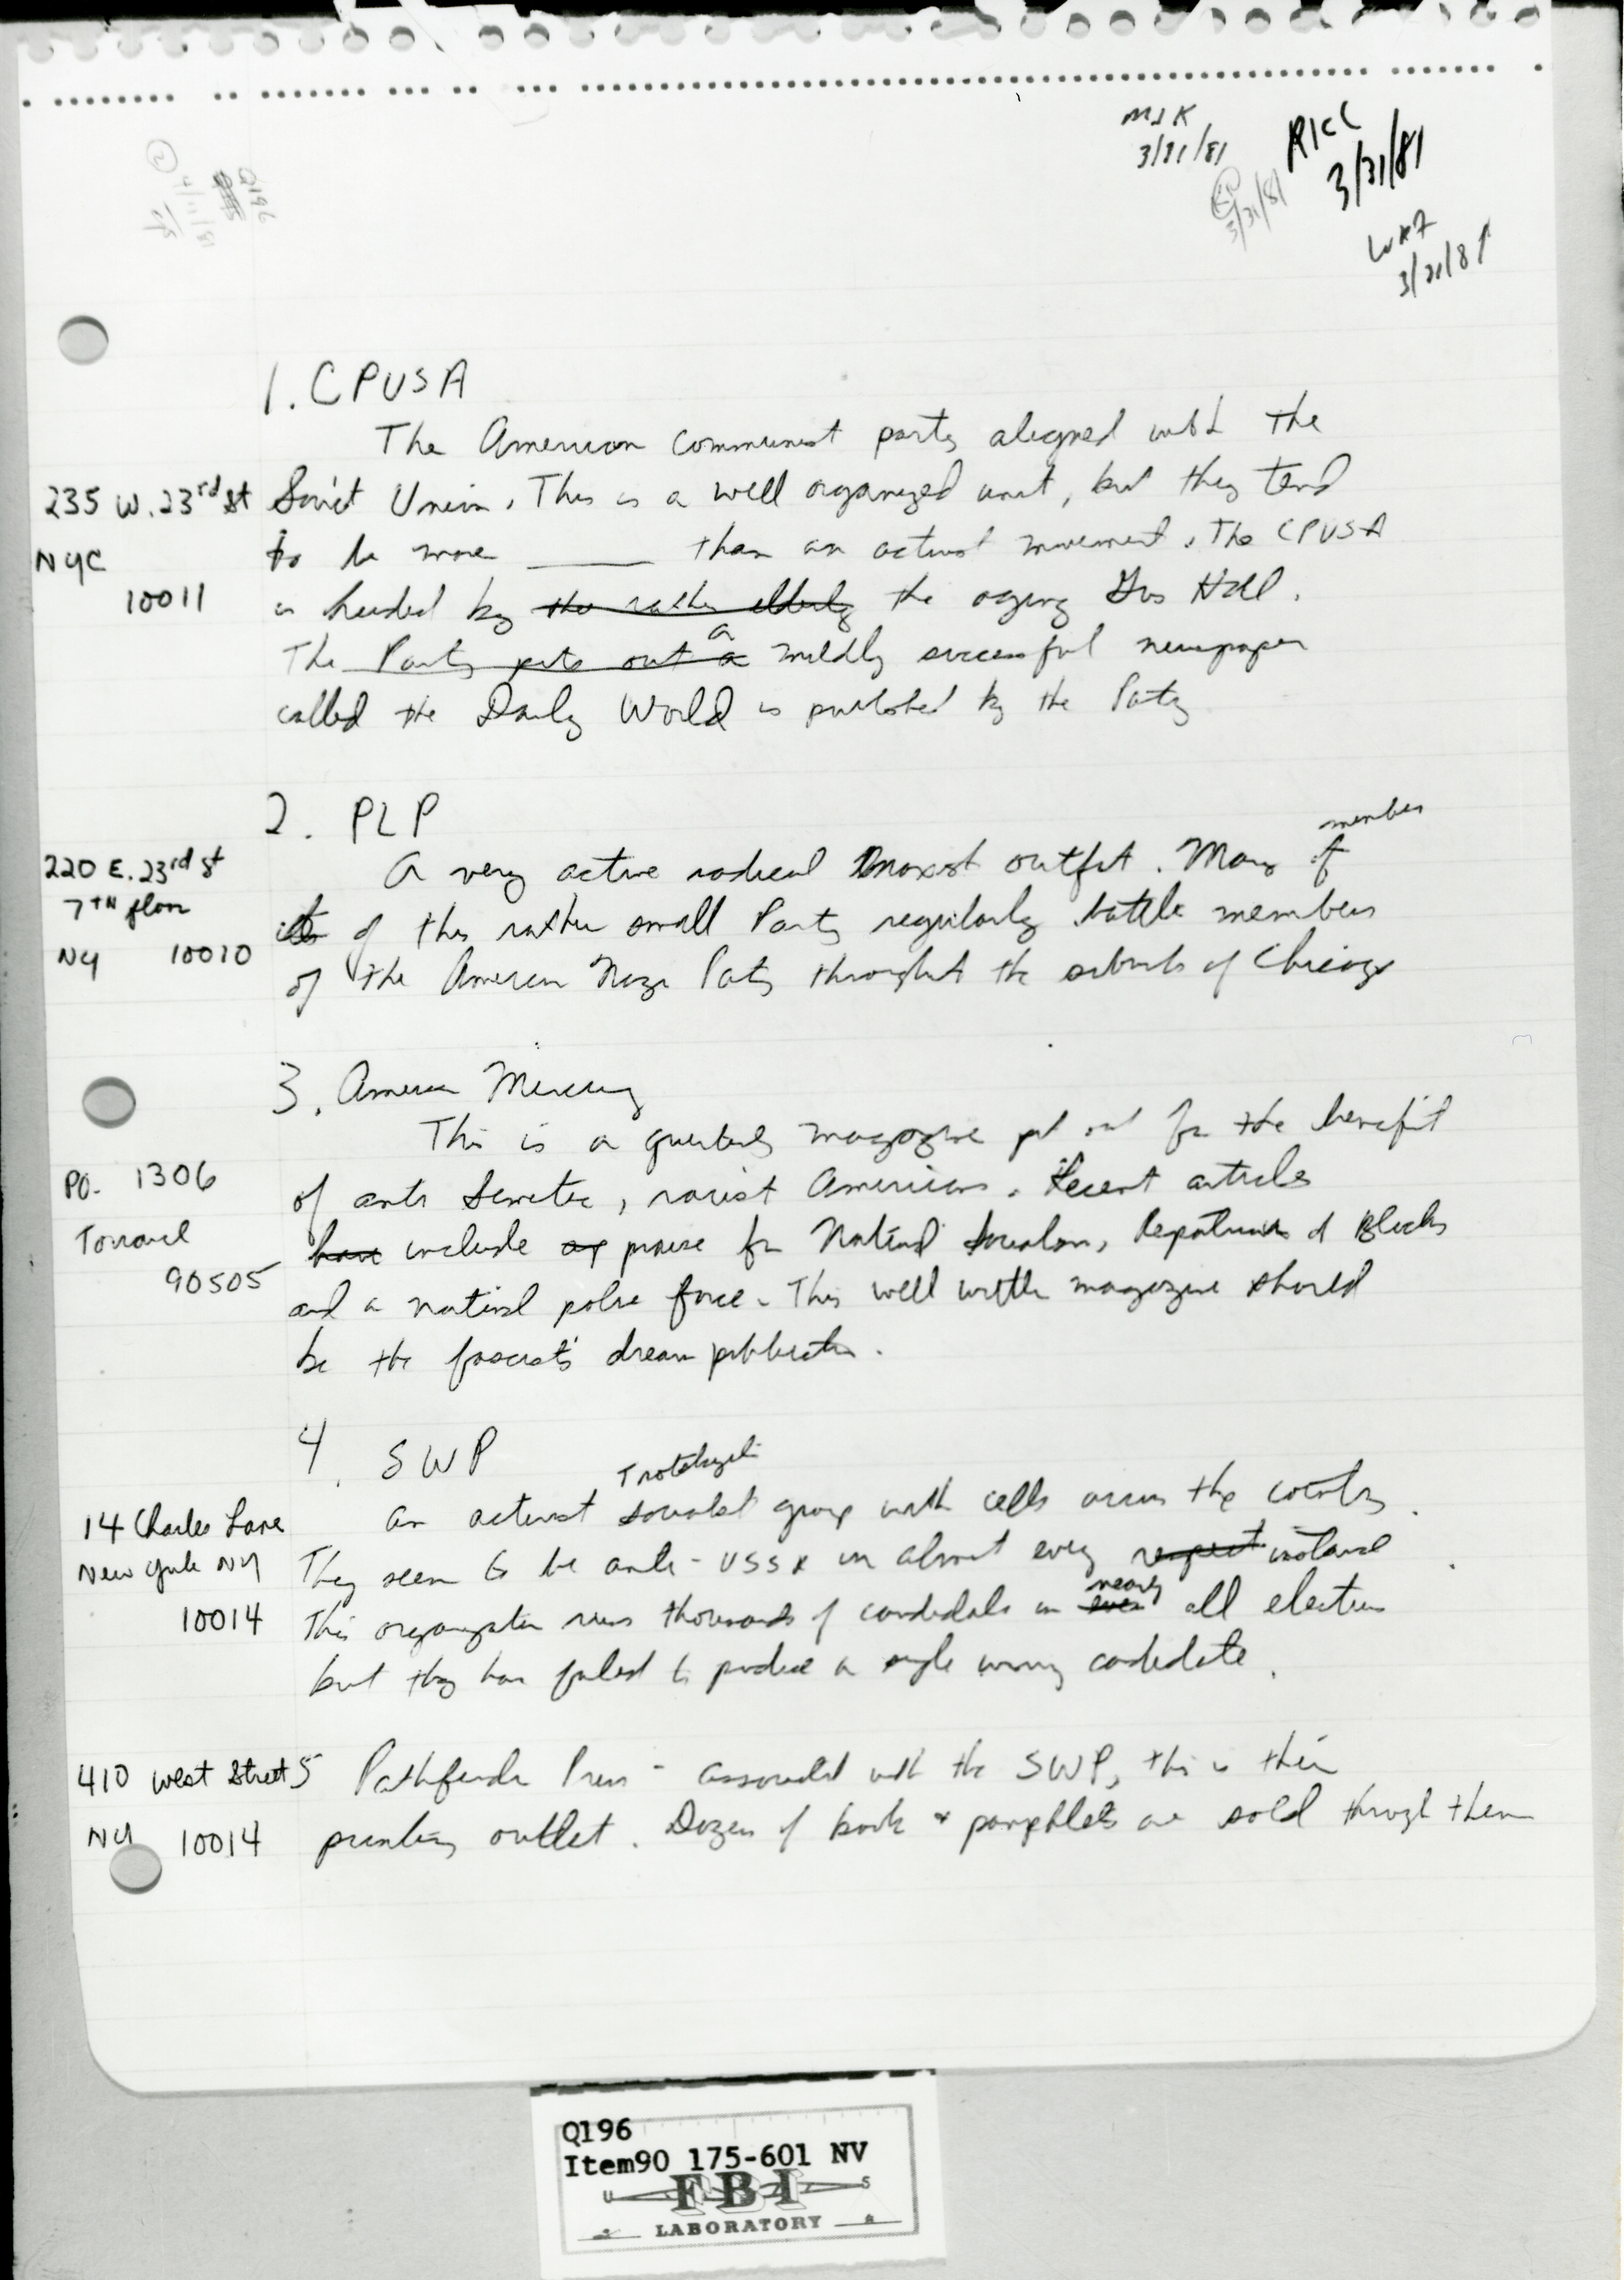 MJK
3/31/81
RICC
3/31/81
3/31/81
3/31/81
Q196
1. CPUSA
The American Communist party aligned with the
235 W. 23rd St
Soviet Union. This is a well organized unit, but they tend
NYC
to be more ____ than an activist movement. The CPUSA
10011
is headed by the rather elderly the aging Gus Hall.
The Party puts out a a mildly successful newspaper
called the Daily World is published by the Party
2. PLP
member
220 E. 23rd St
A very active radical Marxist outfit. Many of
7TH floor
its of this rather small Party regularly battle members
NY 10010
of the American Nazi Party throughout the suburbs of Chicago
3. American Mercury
This is a quarterly magazine put out for the benefit
PO. 1306
of anti Semitic, racist Americans. Recent articles
Torrance
have include praise for National Socialism, Repatriation of Blacks
90505
and a national police force. This well written magazine should
be the fascist's dream publication.
4. SWP
Trotskyite
14 Charles Lane
An activist socialist group with cells across the country.
New York NY
They seem to be anti-USSR in almost every respect instance
nearly
10014
This organization runs thousands of candidates in even all elections
but they have failed to produce a single winning candidate.
410 West Street
5 Pathfinder Press - associated with the SWP, this is their
NY 10014
printing outlet. Dozens of books + pamphlets are sold through them
Q196
Item90 175-601 NV
U S
FBI
LABORATORY